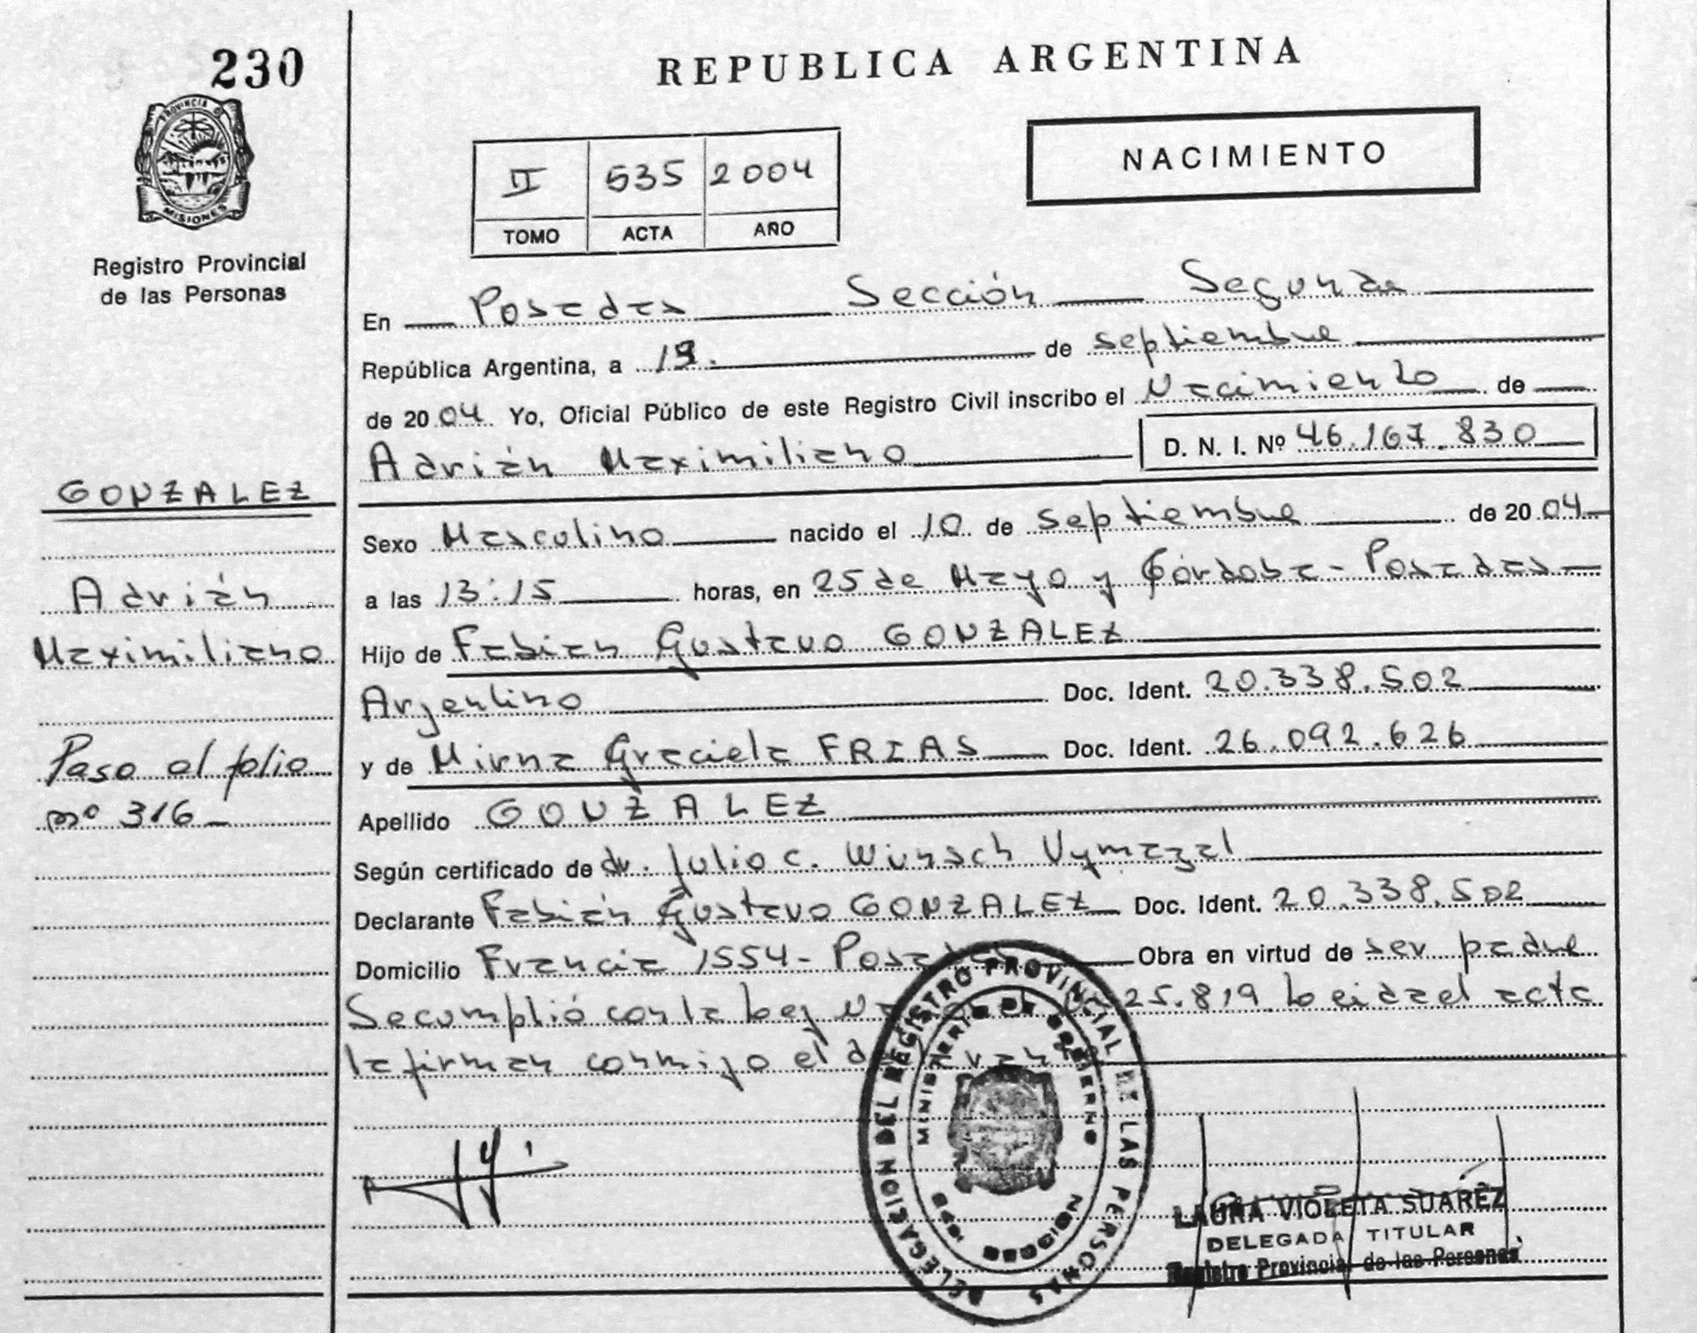 230
REPUBLICA ARGENTINA
PROVINCIA D
MISIONES
Registro Provincial
de las Personas
NACIMIENTO
II 535 2004
TOMO ACTA AÑO
En Posadas Sección Segunda
República Argentina, a 19. de septiembre
de 2004 Yo, Oficial Público de este Registro Civil inscribo el Nacimiento de
Adrián Maximiliano D. N. I. Nº 46.167.830
GONZALEZ
Adrián
Maximiliano
Paso al folio
nº 316
Sexo Masculino nacido el 10 de septiembre de 2004
a las 13:15 horas, en 25 de Mayo y Córdoba - Posadas
Hijo de Fabián Gustavo GONZALEZ
Argentino Doc. Ident. 20.338.502
y de Mirna Graciela FRIAS Doc. Ident. 26.092.626
Apellido GONZALEZ
Según certificado de dr. Julio C. Wunsch Vymazal
Declarante Fabián Gustavo GONZALEZ Doc. Ident. 20.338.502
Domicilio Francia 1554 - Posadas Obra en virtud de ser padre
Se cumplió con la Ley 25.819 Leida el acta
la firman conmigo el
DELEGACION DEL REGISTRO PROVINCIAL DE LAS PERSONAS
MINISTERIO DE GOBIERNO
MISIONES
LAURA VIOLETA SUAREZ
DELEGADA TITULAR
Registro Provincial de las Personas